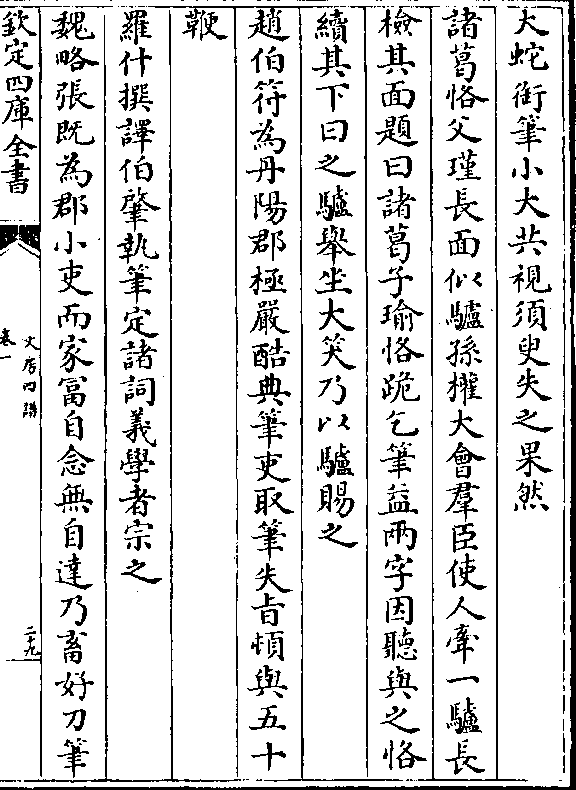 大蛇銜筆小大共視須臾失之果然
諸葛恪父瑾長面似驢孫權大會羣臣使人牽一驢長
檢其面題曰諸葛子瑜恪跪乞筆益兩字因聽與之恪
續其下曰之驢舉坐大笑乃以驢賜之
趙伯符為丹陽郡極嚴酷典筆吏取筆失旨頓與五十
鞭
羅什撰譯伯肇執筆定諸詞義學者宗之
魏略張既為郡小吏而家富自念無自達乃畜好刀筆
欽定四庫全書
文房四譜
卷一
二十九